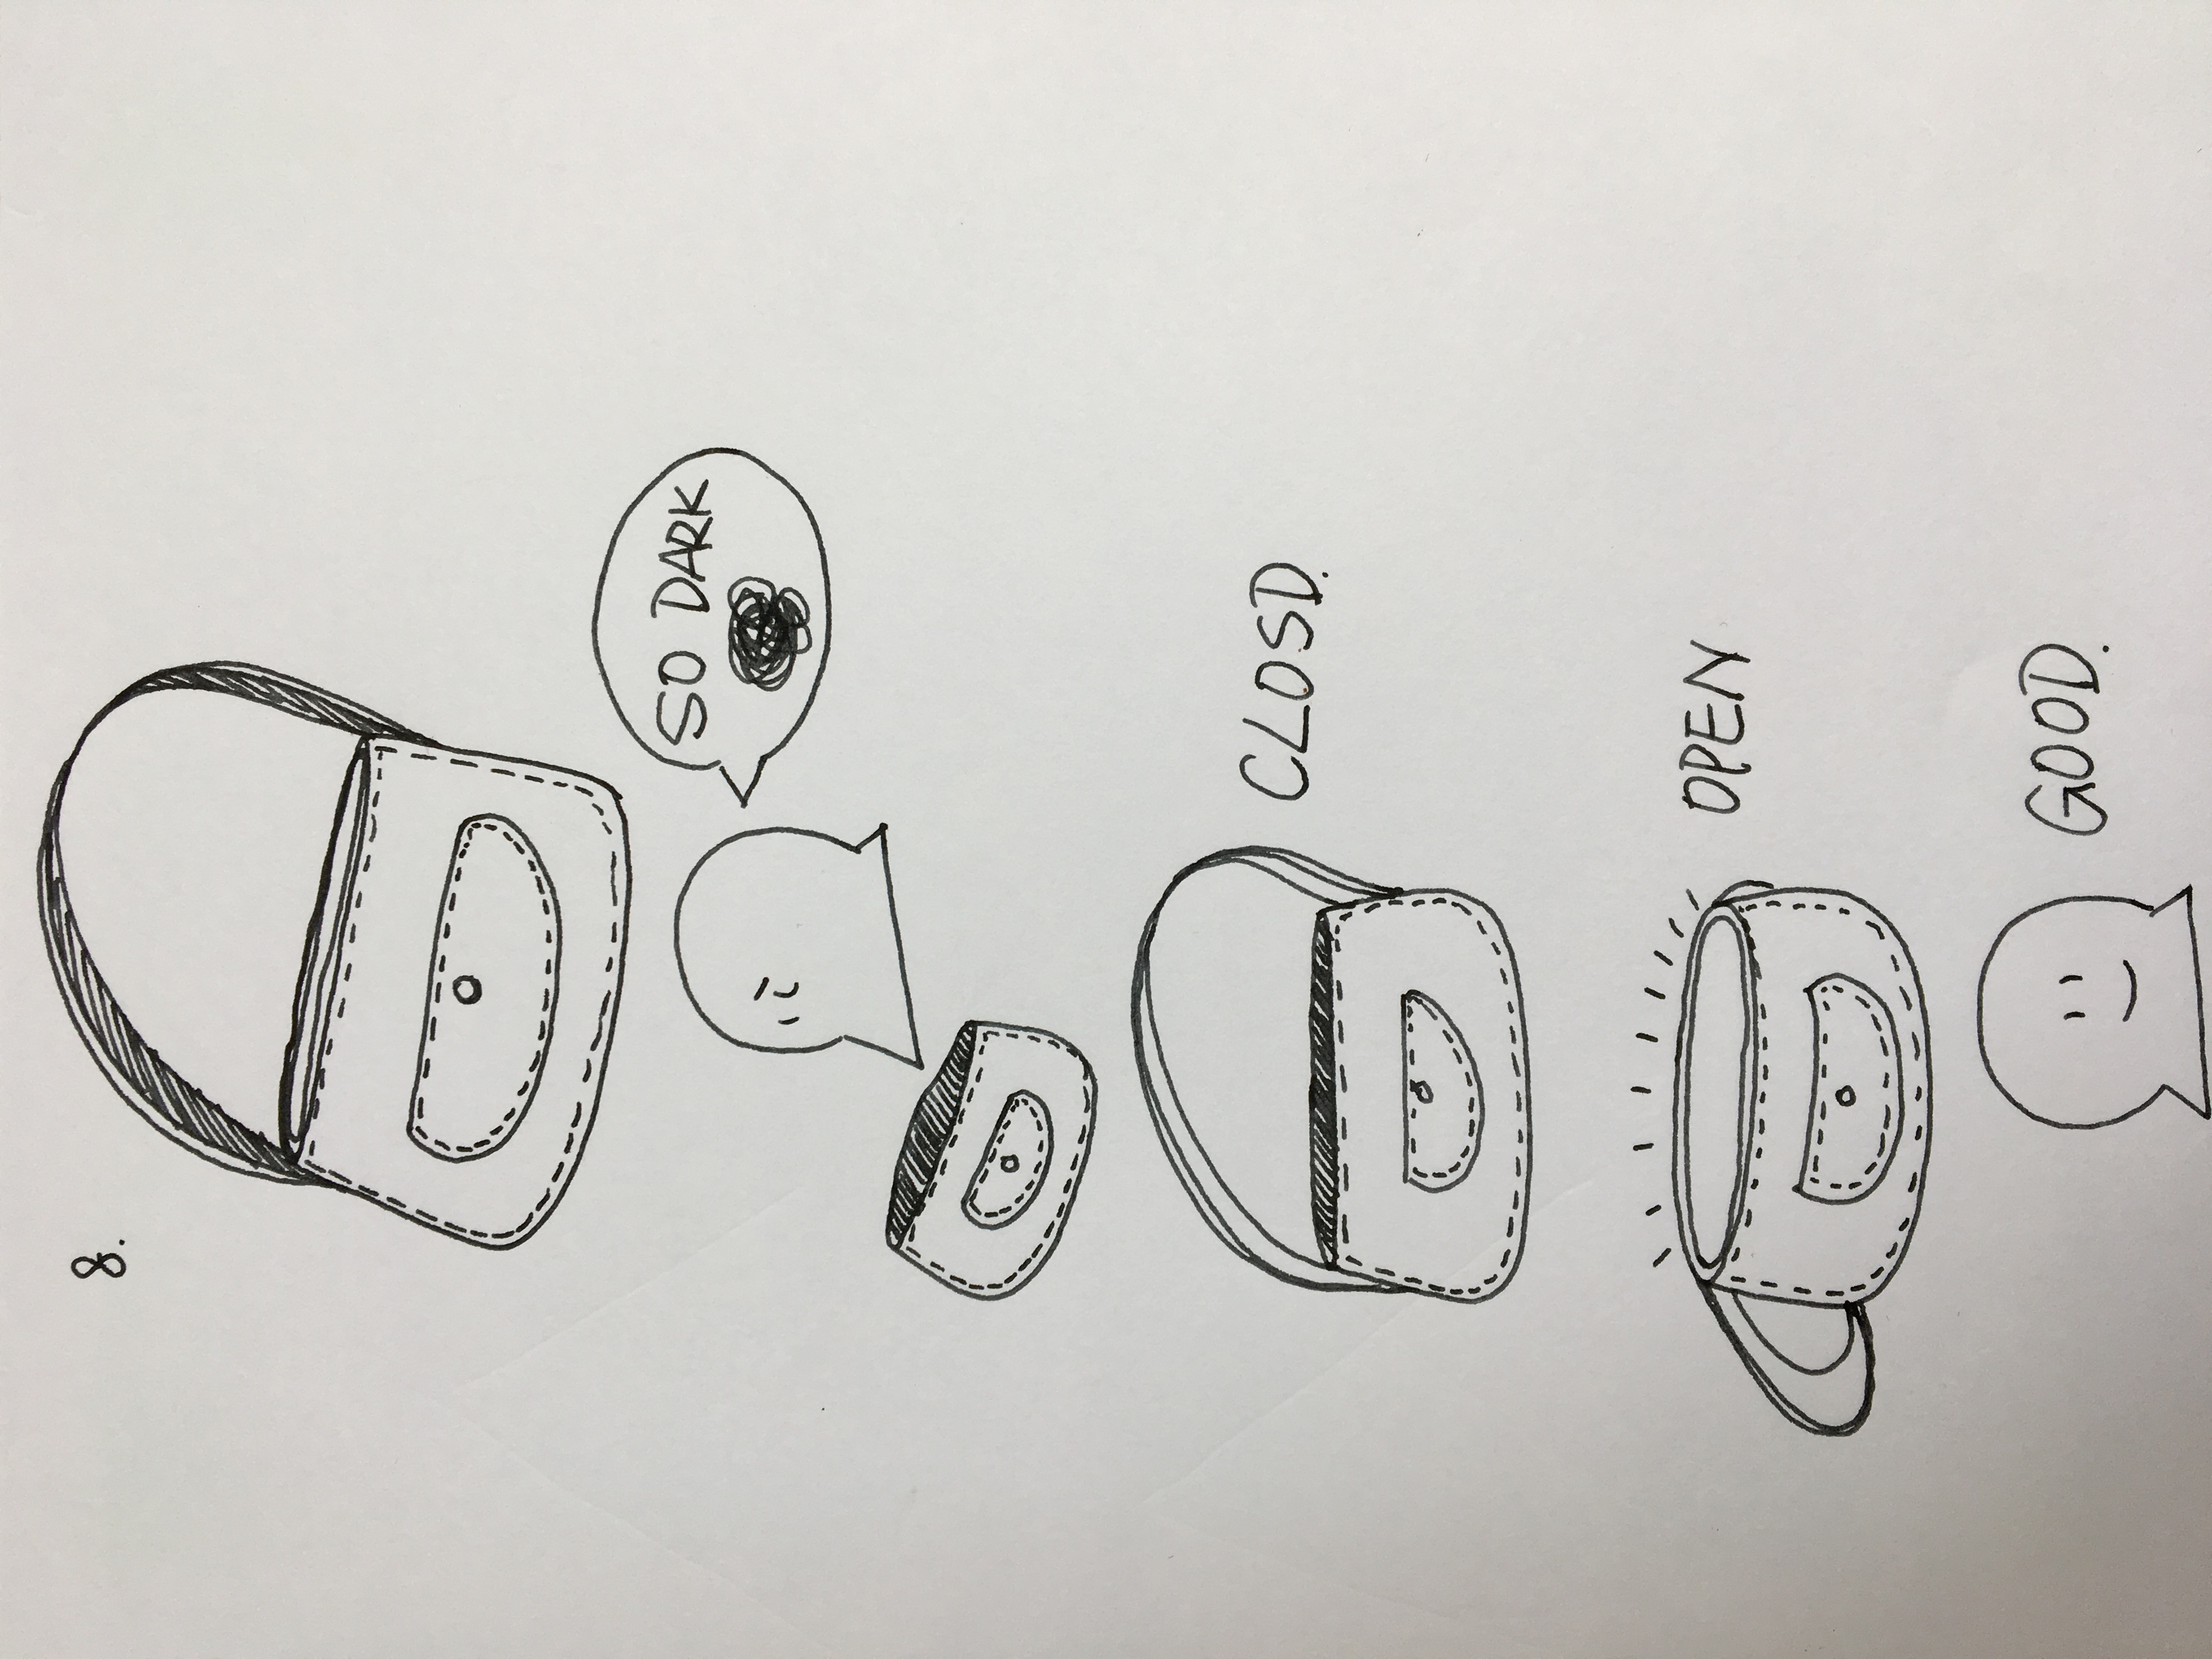 8.
SO DARK
CLOSD.
OPEN
GOOD.